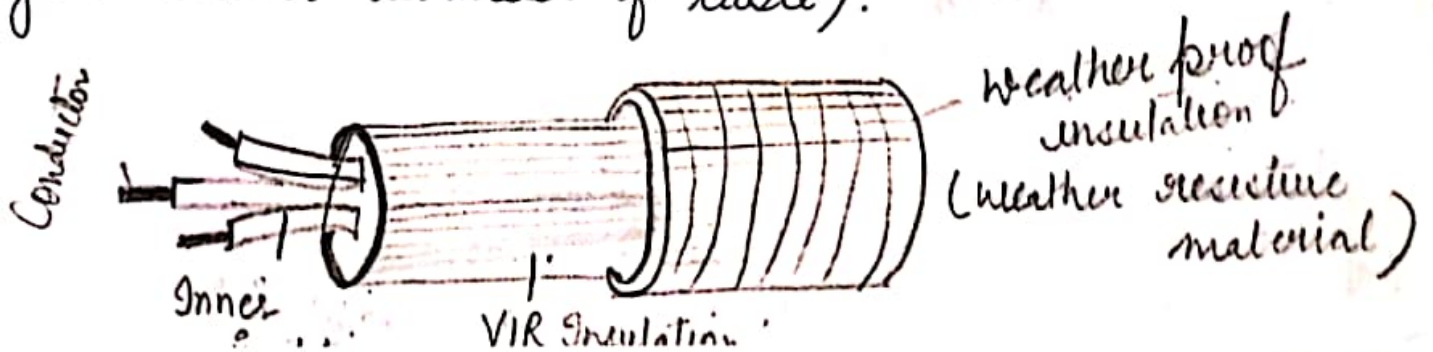 of
Conductor
weather proof
insulation
(weather resistive
material)
Inner
VIR Insulation